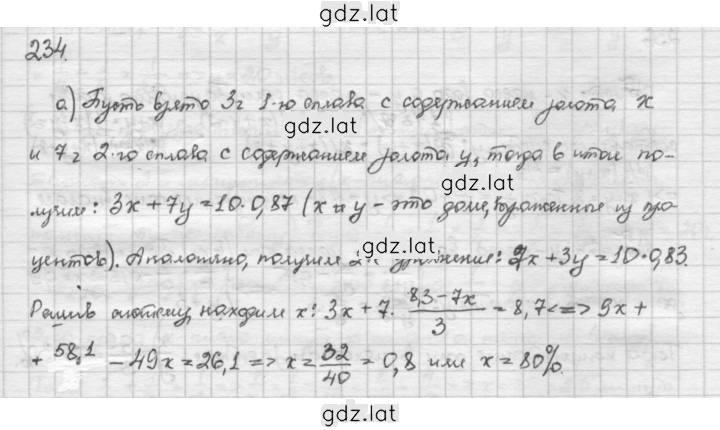 gdz.lat
234.
а) Пусть взято 3г 1-го сплава с содержанием золота x
gdz.lat
и 7г 2-го сплава с содержанием золота y, тогда в итоге по-
лучим: 3x + 7y = 10·0,87 (x и y - это доли, выраженные из про-
gdz.lat
центов). Аналогично, получим 2-е уравнение: 7x + 3y = 10·0,83.
Решив систему, находим x: 3x + 7· (8,3-7x)/3 = 8,7 <=> 9x +
+ 58,1 - 49x = 26,1 => x = 32/40 = 0,8 или x = 80%.
gdz.lat